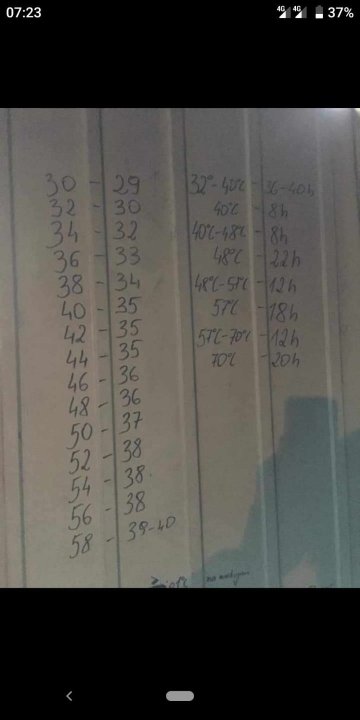 07:23
4G 4G 37%
30 - 29
32 - 30
34 - 32
36 - 33
38 - 34
40 - 35
42 - 35
44 - 35
46 - 36
48 - 36
50 - 37
52 - 38
54 - 38
56 - 38
58 - 39-40
32°-40°C - 36-40h
40°C - 8h
40°C-48°C - 8h
48°C - 22h
48°C-57°C - 12h
57°C - 18h
57°C-70°C - 12h
70°C - 20h